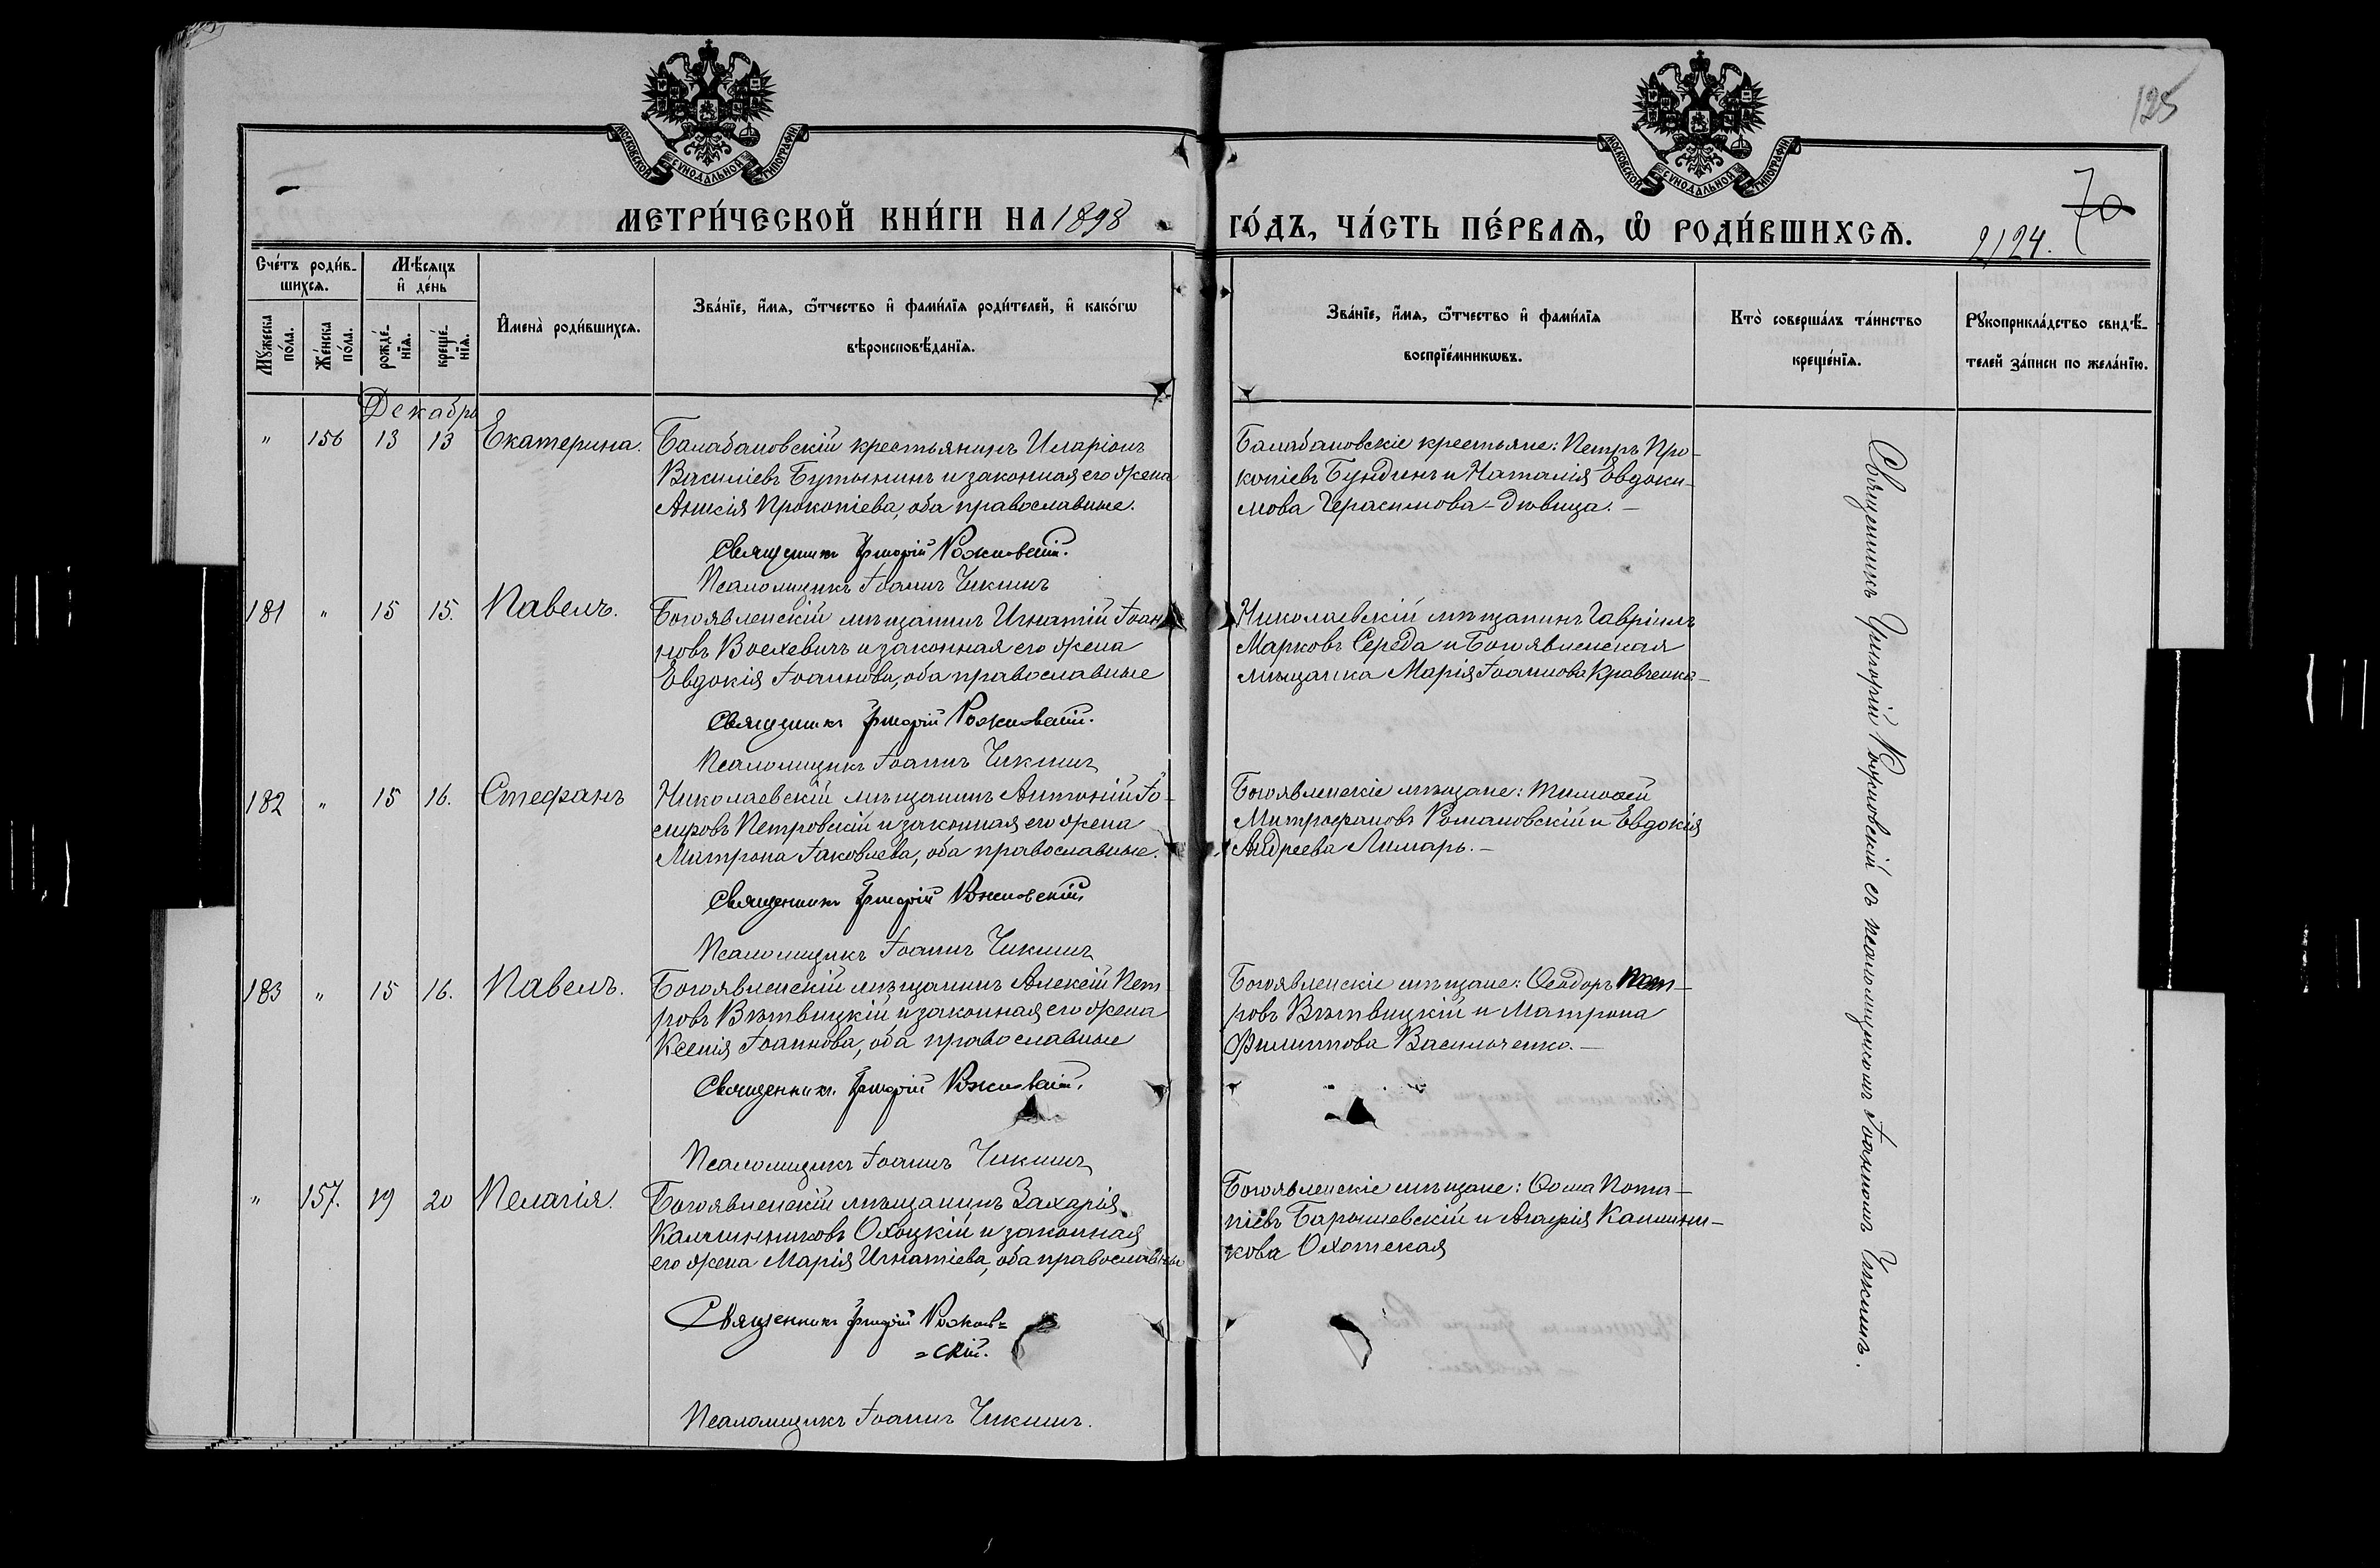 125
70
2124.
МОСКОВСКОЙ СѴНОДАЛЬНОЙ ТИПОГРАФІИ
МОСКОВСКОЙ СѴНОДАЛЬНОЙ ТИПОГРАФІИ
МЕТРИ́ЧЕСКОЙ КНИ́ГИ НА 1898 ГО́ДЪ, ЧА́СТЬ ПЕ́РВАѦ, Ѡ РОДИ́ВШИХСѦ.
Сче́тъ роди́в-
шихсѧ.
Мѣ́сѧцъ
и҆ де́нь
Мꙋ́жеска по́ла.
Же́нска по́ла.
рожде́-нїѧ.
креще́-нїѧ.
И҆мена̀ роди́вшихсѧ.
Зва́нїе, и҆́мѧ, ѻ҆́тчество и҆ фами́лїѧ роди́телей, и҆ како́гѡ
вѣроисповѣ́данїѧ.
Зва́нїе, и҆́мѧ, ѻ҆́тчество и҆ фами́лїѧ
воспрїе́мникѡвъ.
Кто̀ соверша́лъ та́инство
креще́нїѧ.
Рꙋкоприкла́дство свидѣ́-
телей за́писи по жела́нїю.
Декабрь
" 156 13 13 Екатерина.
Балабановскій крестьянинъ Иларіонъ
Василіевъ Бутынинъ и законная его жена
Анисія Прокопіева, оба православные.
Священникъ Григорій Рожновскій.
Псаломщикъ Іоаннъ Чикинъ
Балабановскіе крестьяне: Петръ Про-
копіевъ Бундинъ и Наталія Евдоки-
мова Герасимова-дѣвица. –
181 " 15 15. Павелъ.
Богоявленскій мѣщанинъ Игнатій Іоан
новъ Воехевичъ и законная его жена
Евдокія Іоаннова, оба православные
Священникъ Григорій Рожновскій.
Псаломщикъ Іоаннъ Чикинъ
Николаевскій мѣщанинъ Гавріилъ
Марковъ Середа и Богоявленская
мѣщанка Марія Іоаннова Кравченко –
182 " 15 16. Стефанъ
Николаевскій мѣщанинъ Антоній Іо-
сифовъ Петровскій и законная его жена
Матрона Іаковлева, оба православные.
Священникъ Григорій Рожновскій
Псаломщикъ Іоаннъ Чикинъ
Богоявленскіе мѣщане: Тимоѳей
Митрофановъ Романовскій и Евдокія
Андреева Лимарь. –
183 " 15 16. Павелъ.
Богоявленскій мѣщанинъ Алексій Пет
ровъ Вѣтвицкій и законная его жена
Ксенія Іоаннова, оба православные
Священникъ Григорій Рожновскій.
Псаломщикъ Іоаннъ Чикинъ
Богоявленскіе мѣщане: Ѳеодоръ Пет-
ровъ Вѣтвицкій и Матрона
Филиппова Васильченко. –
" 157. 19 20 Пелагія.
Богоявленскій мѣщанинъ Захарія
Калинниковъ Охоцкій и законная
его жена Марія Игнатіева, оба православные
Священникъ Григорій Рожнов=
=скій.
Псаломщикъ Іоаннъ Чикинъ.
Богоявленскіе мѣщане: Ѳома Пота-
піевъ Барышевскій и Агафія Калинни-
кова Охотская
Священникъ Григорій Рожновскій съ псаломщикомъ Іоанномъ Чикинъ.